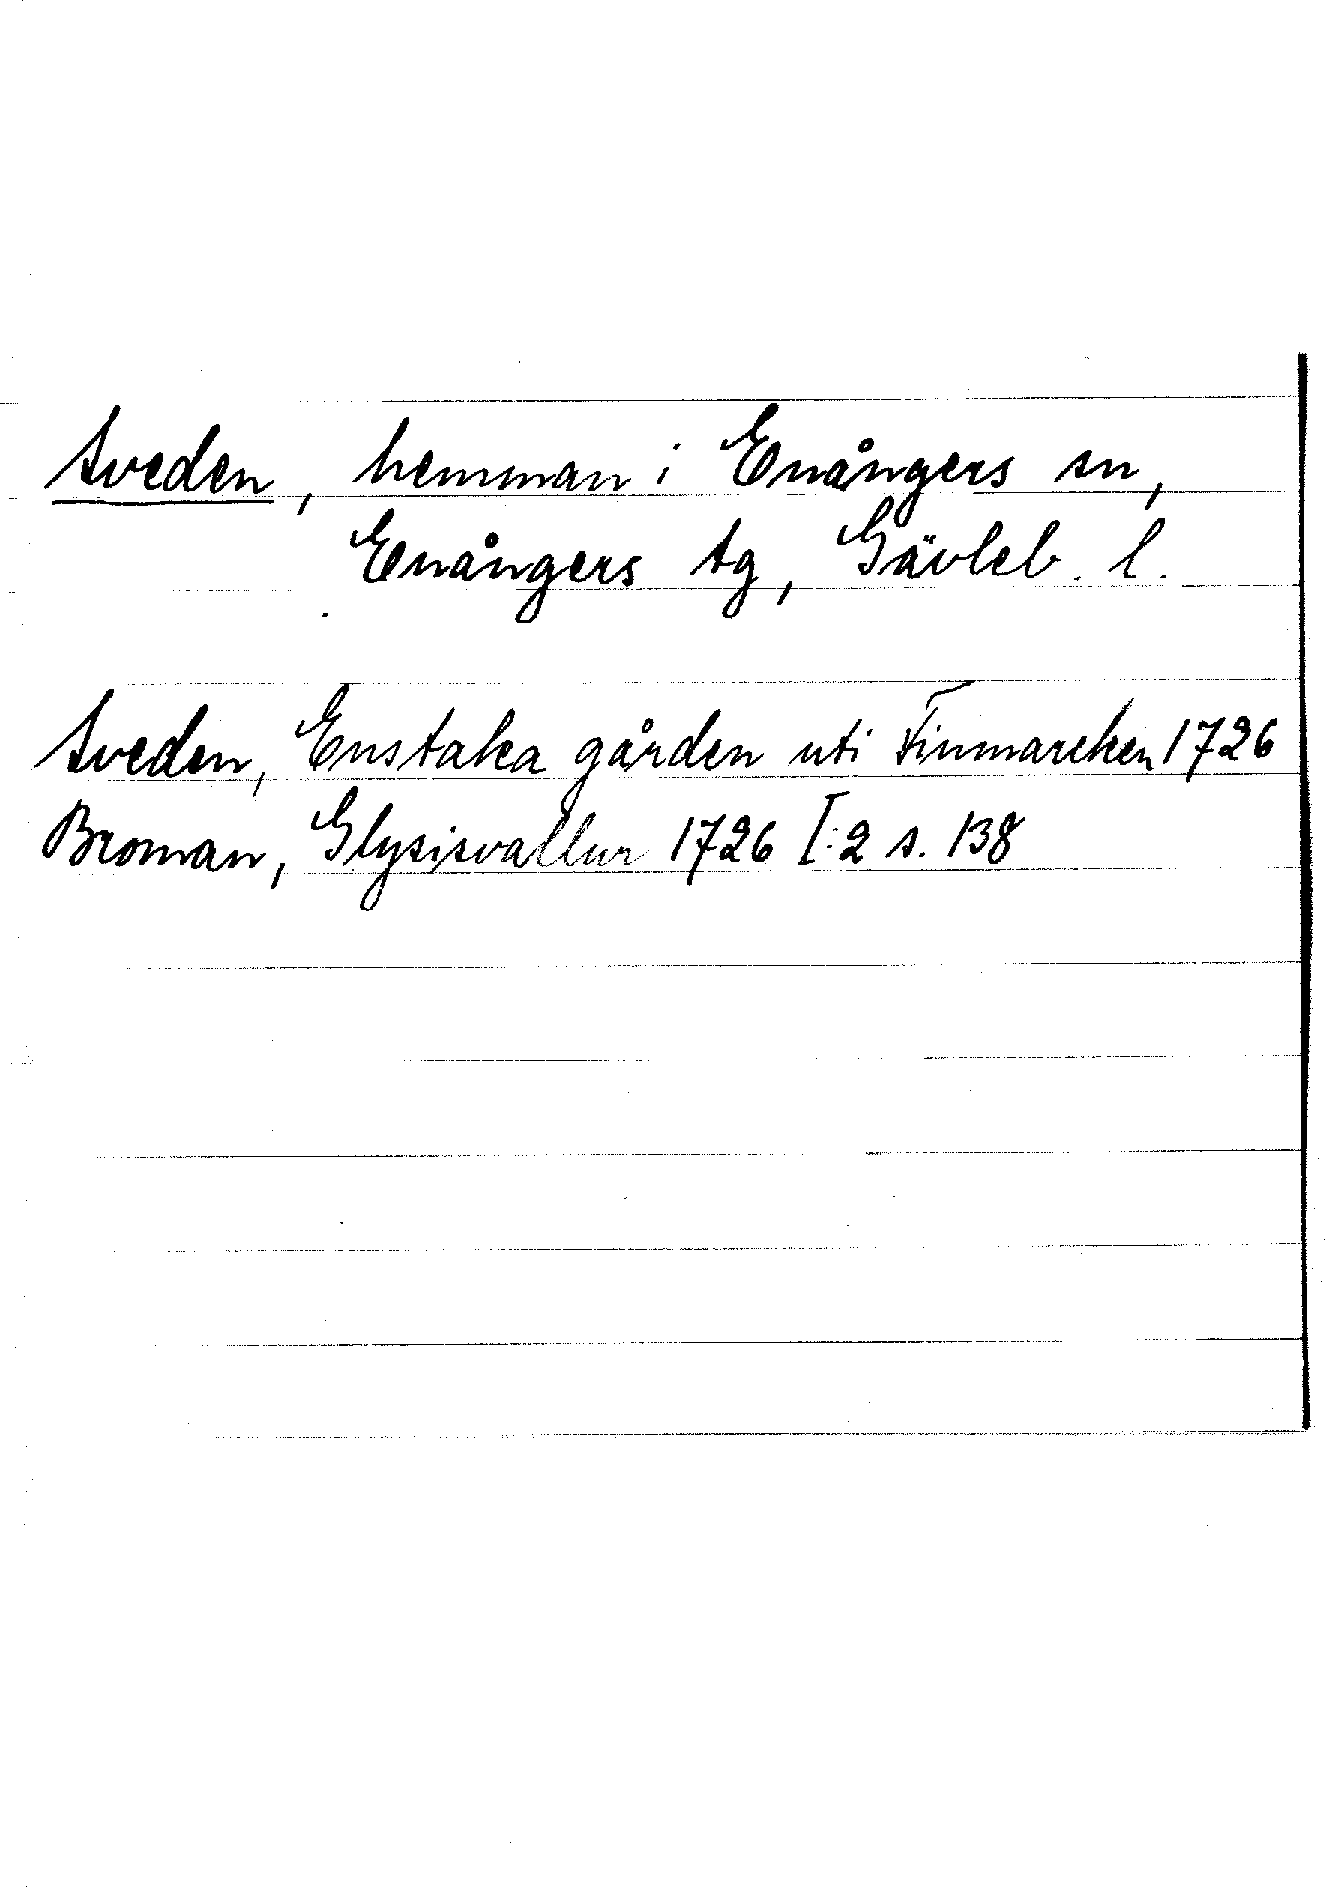 Sveden, hemman i Enångers sn,
Enångers tg, Gävleb. l.
Sveden, Enstaka gården uti Finmarcken 1726
Broman, Glysisvallur 1726 I:2 s. 138